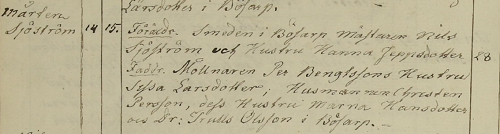 Larsdotter i Bösarp.
Mårten
Sjöström 14 15. Föräldr. Smeden i Bösarp mästaren Nils
Sjöström och Hustru Hanna Jeppsdotter 28
Faddr. Möllnaren Per Bengtssons Hustru
Sissa Larsdotter; Husmannen Christen
Persson, dess Hustru Marna Hansdotter
och Dr: Truls Olsson i Bösarp. —